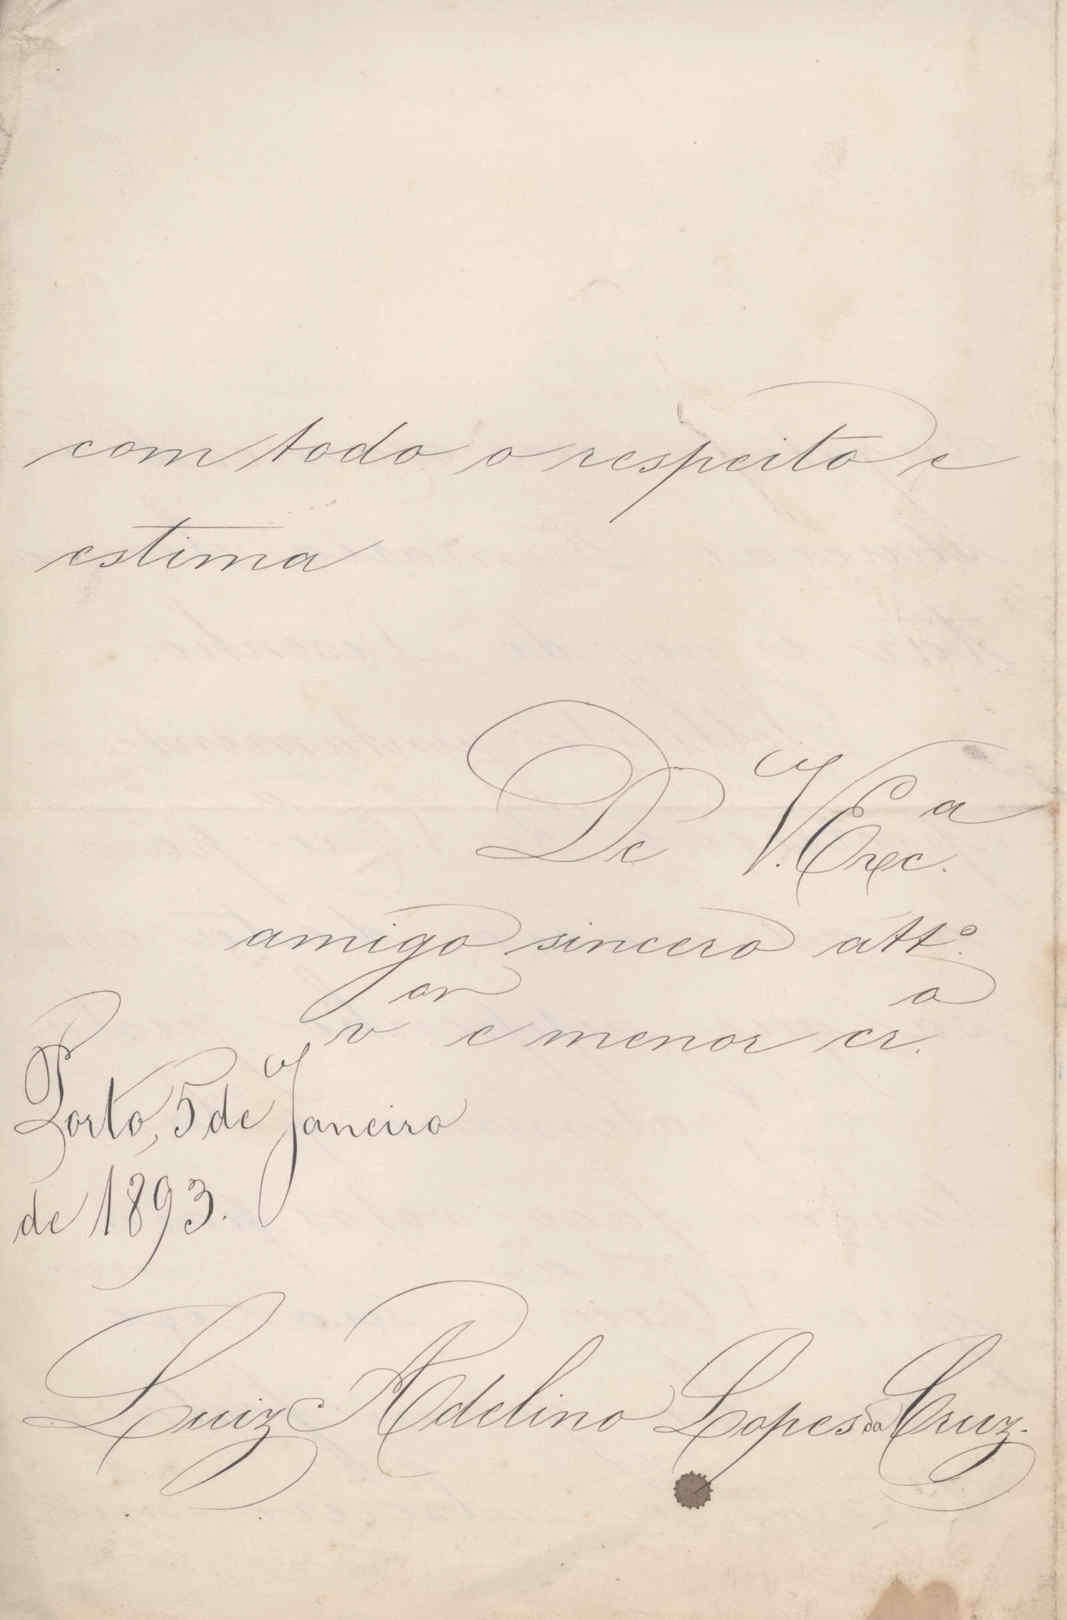 com todo o respeito e
estima
De V. Exc.ª
amigo sincero att.º
v.or e menor cr.º
Porto, 5 de Janeiro
de 1893.
Luiz Adelino Lopes da Cruz.